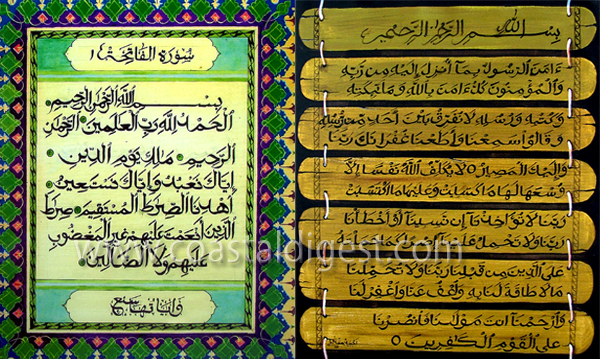 سُورَة الفَاتِحَة
بسم الله الرحمن الرحيم
الحمد لله رب العلمين الرحمن
الرحيم ملك يوم الدين
إياك نعبد وإياك نستعين
اهدنا الصرط المستقيم صرط
الذين أنعمت عليهم غير المغضوب
عليهم ولا الضالين
وآياتها سبع
بسم الله الرحمن الرحيم
ءامن الرسول بما أنزل إليه من ربه
والمؤمنون كل ءامن بالله وملئكته
وكتبه ورسله لا نفرق بين أحد من رسله
وقالوا سمعنا وأطعنا غفرانك ربنا
وإليك المصير ٥ لا يكلف الله نفسا إلا
وسعها لها ما كسبت وعليها ما اكتسبت
ربنا لا تؤاخذنا إن نسينا أو أخطأنا
ربنا ولا تحمل علينا إصرا كما حملته
على الذين من قبلنا ربنا ولا تحملنا
ما لا طاقة لنا به واعف عنا واغفر لنا
وارحمنا أنت مولانا فانصرنا
على القوم الكفرين ٥
www.coastaldigest.com